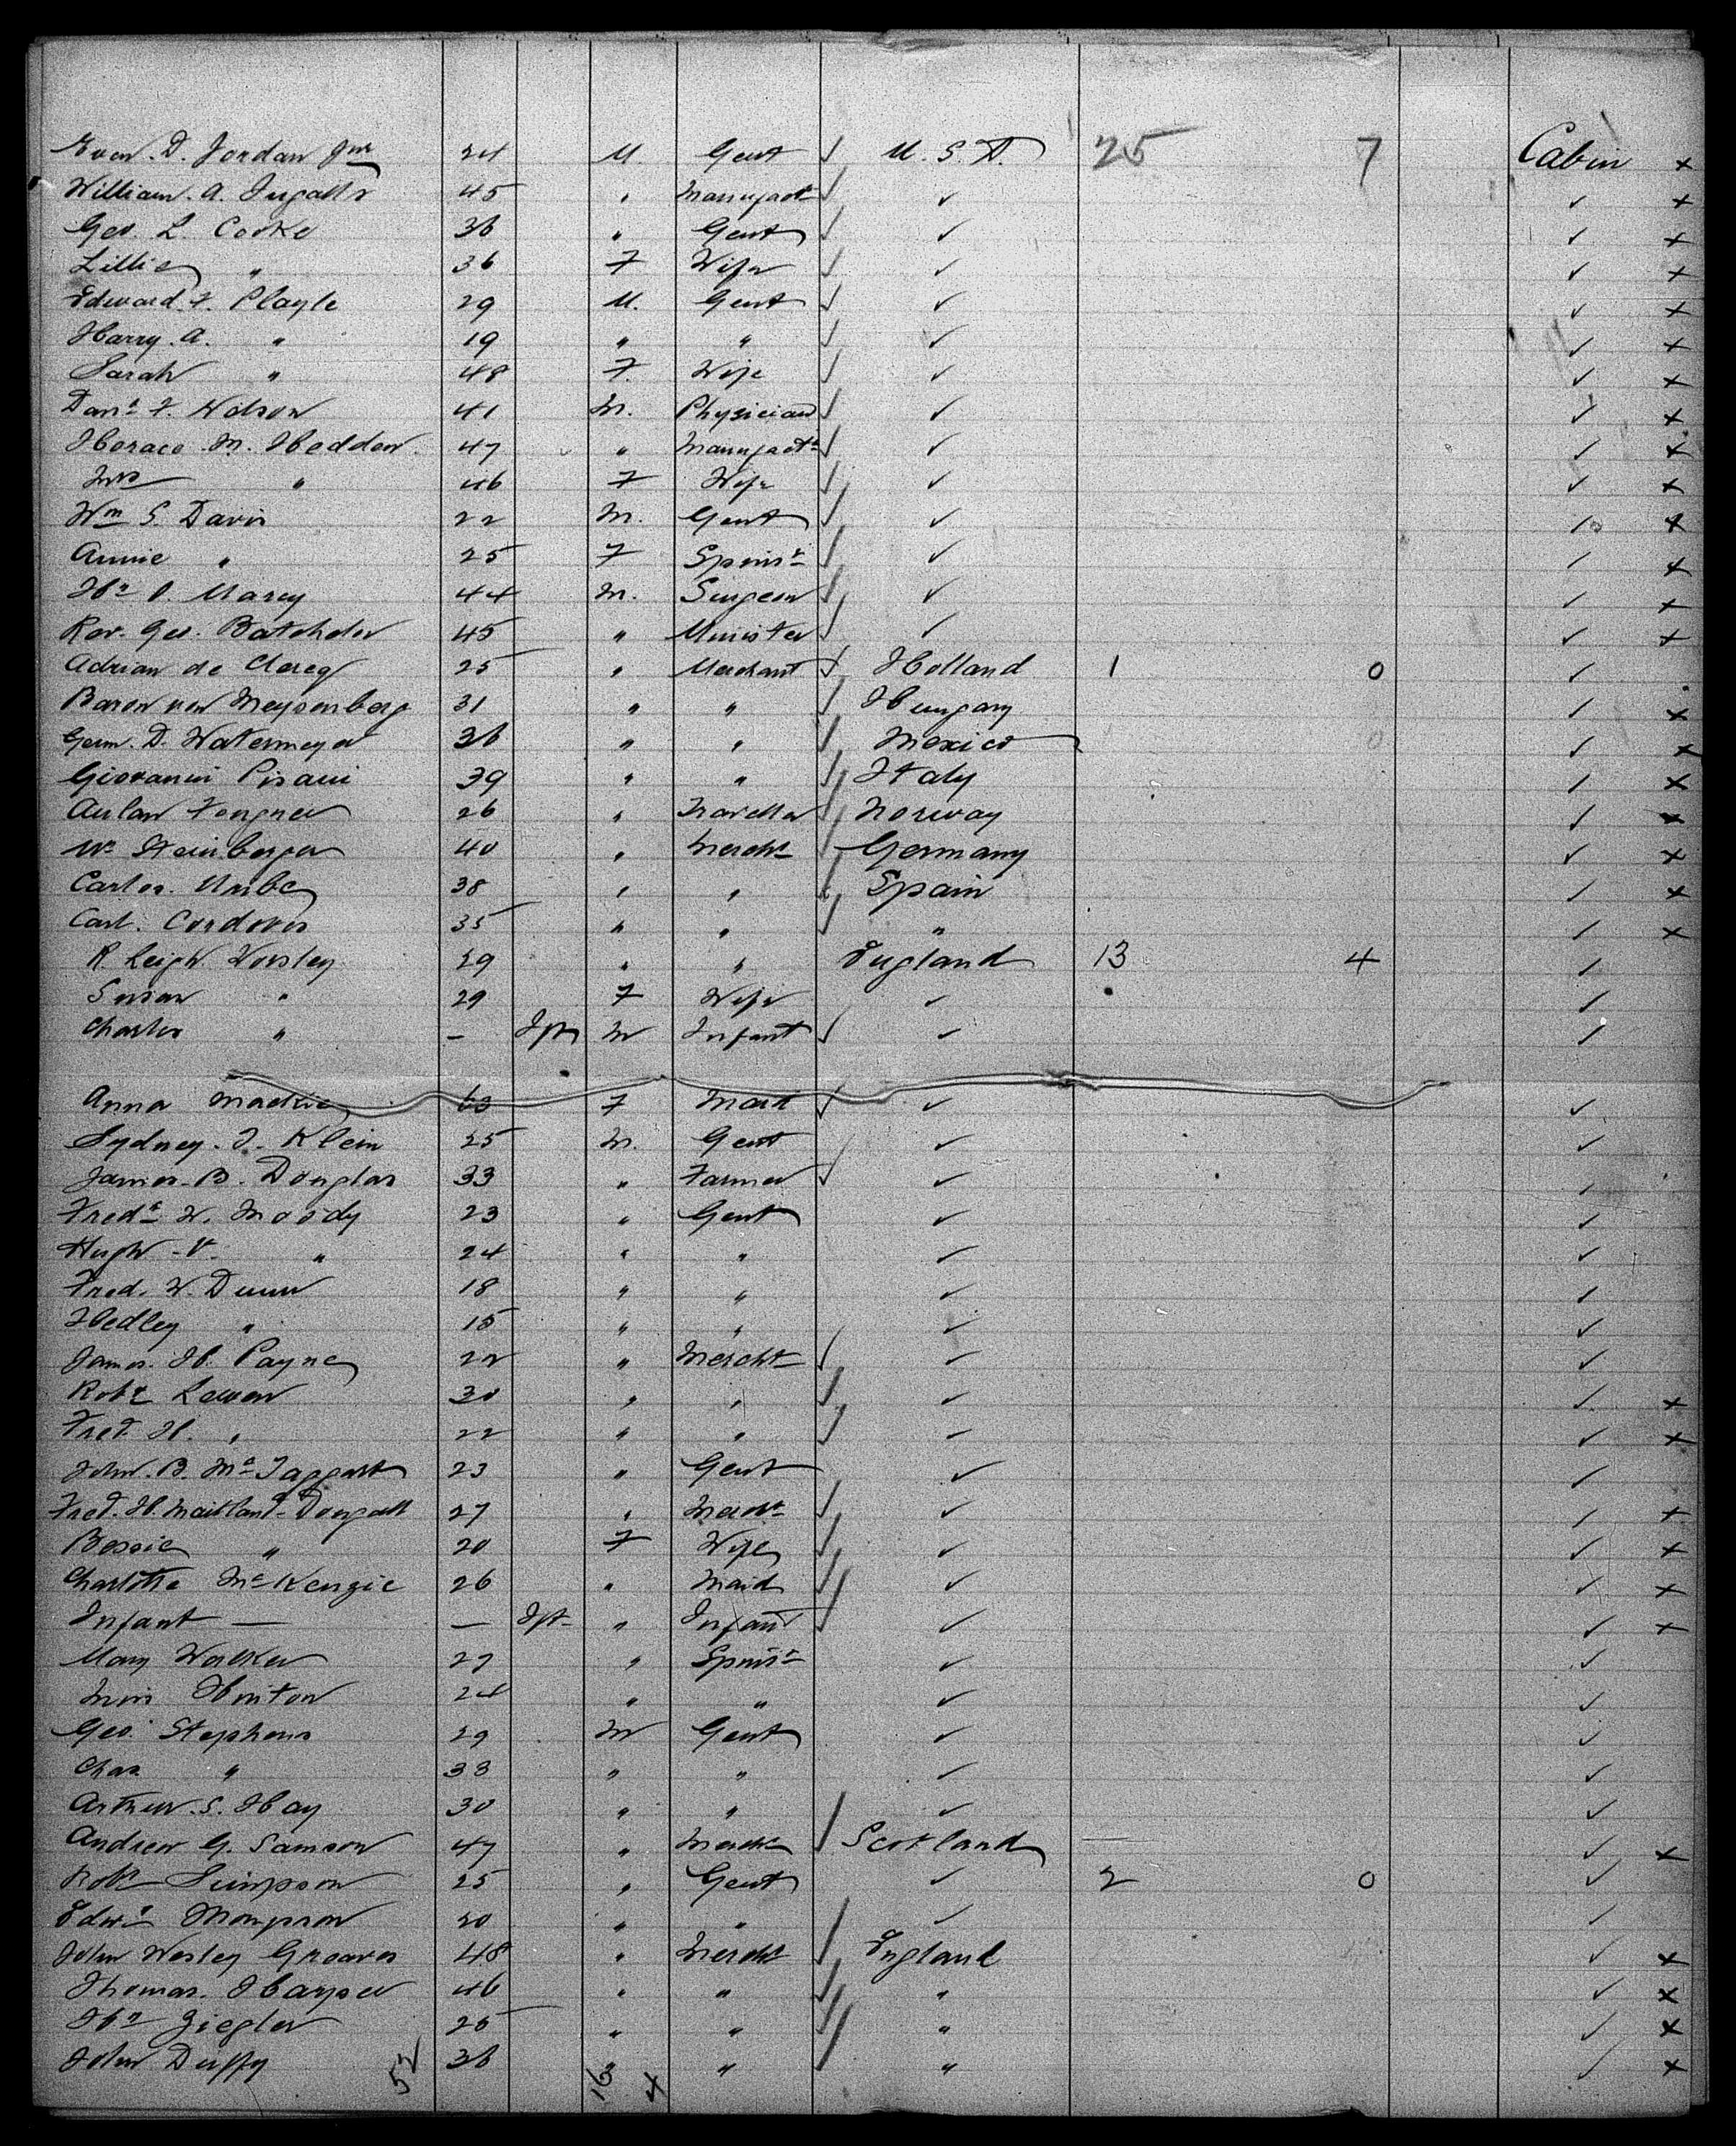 Even. D. Jordan Jnr 24 M Gent U. S. A. 25 7 Cabin x
William. A. Ingalls 45 " Manufact ✓ ✓ x
Geo. L. Cooke 36 " Gent ✓ ✓ x
Lillis " 36 F Wife ✓ ✓ x
Edward. F. Playle 29 M. Gent ✓ ✓ x
Harry. A. " 19 " " ✓ ✓ x
Sarah " 48 F. Wife ✓ ✓ x
Danl F. Wilson 41 M. Physician ✓ ✓ x
Horace. M. Hedden. 47 " Manufactr ✓ ✓ x
Mrs " 46 F Wife ✓ ✓ x
Wm S. Davis 22 M. Gent ✓ ✓ x
Annie " 25 F Spinsr ✓ ✓ x
Hy O. Marcy 44 M. Surgeon ✓ ✓ x
Rev. Geo. Batchelor 45 " Minister ✓ ✓ x
Adrian de Clercq 25 " Merchant Holland 1 0 ✓
Baron von Meysenberg 31 " " Hungary ✓ x
Germ. D. Watermeyer 36 " " Mexico 0 ✓ x
Giovanni Pisani 39 " " Italy ✓ x
26 " Traveller Norway ✓ x
Wm Steinberger 40 " Mercht Germany ✓ x
Carlos. Uribe 38 " " Spain ✓ x
Carl. Cordoves 35 " " " ✓ x
R. Leigh Worsley 29 " " England 13 4 ✓
Susan " 29 F Wife ✓ ✓
Charles " — Ift M Infant ✓ ✓
Anna Mackie 63 F Matr ✓ ✓
Sydney. T. Klein 25 M. Gent ✓ ✓
James. B. Douglas 33 " Farmer ✓ ✓
Fredk W. Moody 23 " Gent ✓ ✓
Hugh - V. " 24 " " ✓ ✓
Fred. W. Dunn 18 " " ✓ ✓
Hedley " 15 " " ✓ ✓
James. H. Payne 22 " Mercht ✓ ✓
Robt Lewen 30 " " ✓ ✓ x
Fred. H. " 22 " " ✓ ✓ x
John. B. McTaggart 23 " Gent ✓ ✓
Fred. H. Maitland-Dougall 27 " Mercht ✓ ✓ x
Bessie " 20 F Wife ✓ ✓ x
Charlotte McKenzie 26 " Maid ✓ ✓ x
Infant — — Ift " Infant ✓ ✓ x
Mary Walker 27 " Spinsr ✓ ✓
Miss Hinton 24 " " ✓ ✓
Geo. Stephens 29 M Gent ✓ ✓
Chas " 33 " " ✓ ✓
Arthur. S. Hay 30 " " ✓ ✓
Andrew G. Samson 47 " Mercht Scotland ✓ x
Robt Simpson 25 " Gent ✓ 2 0 ✓
Edwd Thompson 20 " " ✓ ✓
John Wesley Greaves 48 " Mercht England ✓ x
Thomas. Harper 46 " " " ✓ x
Hy Ziegler 25 " " " ✓ x
John Duffy 36 " " " ✓ x
52 16 x